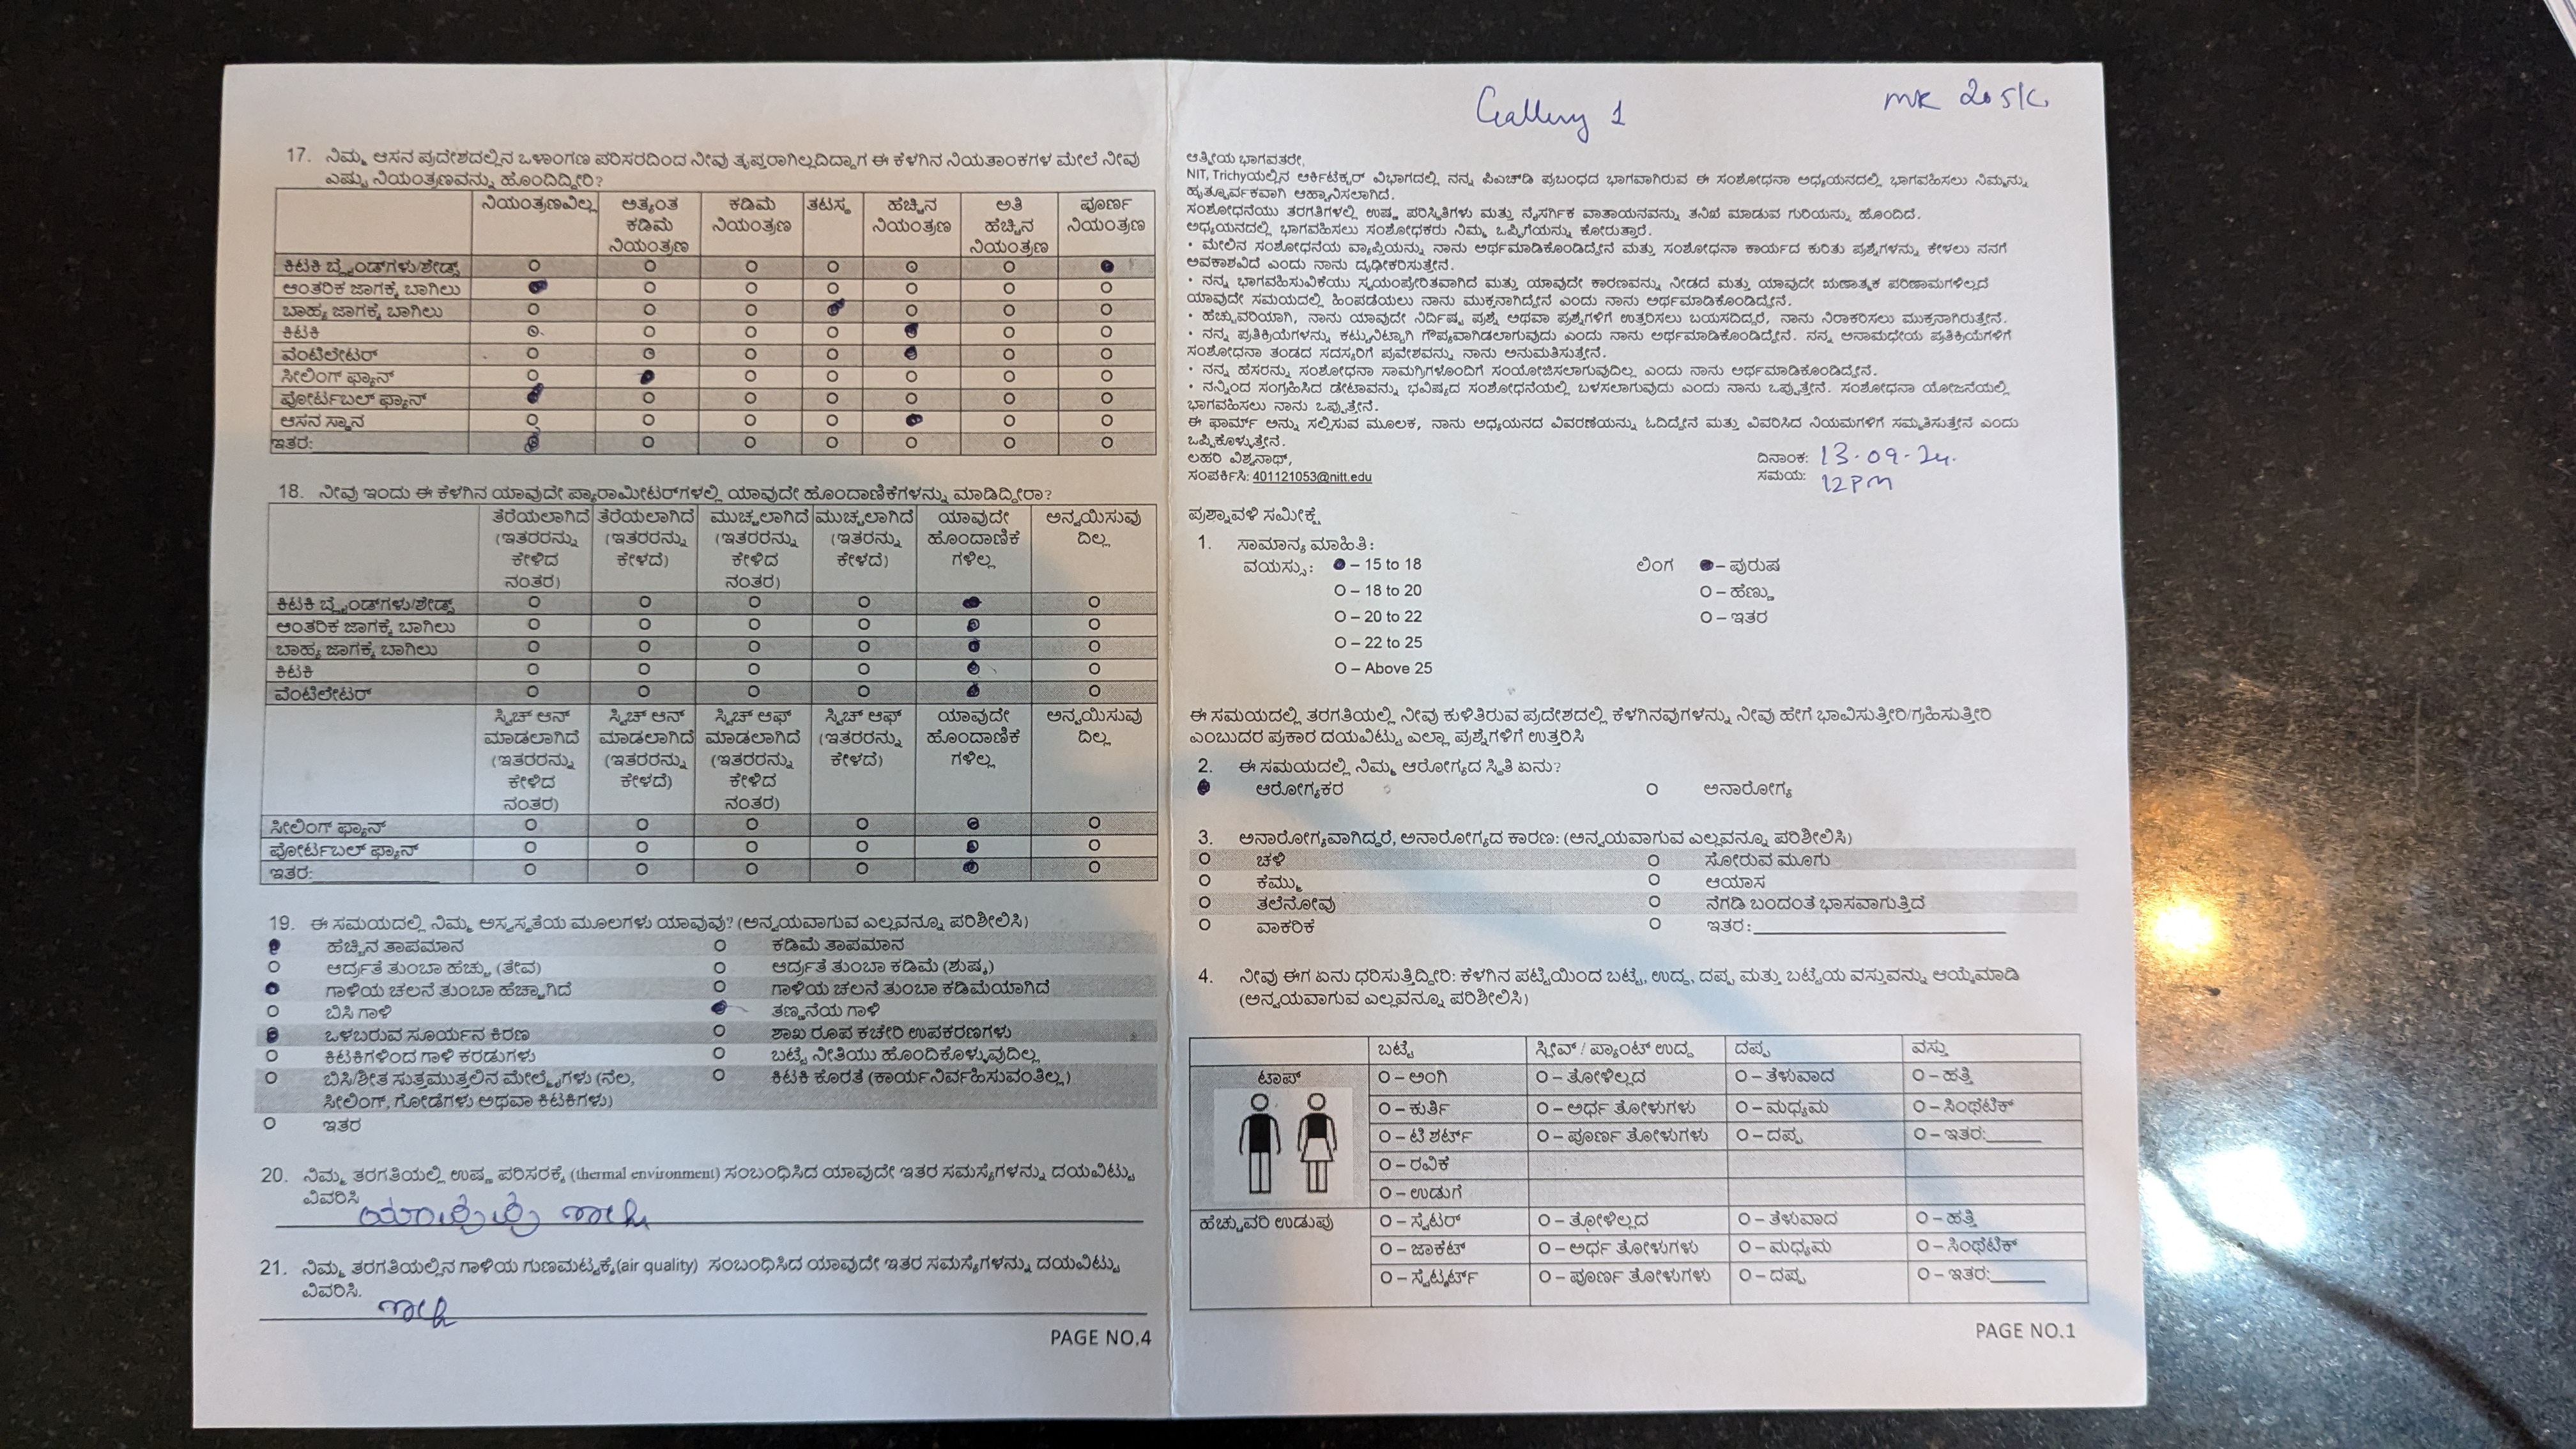 17. ನಿಮ್ಮ ಆಸನ ಪ್ರದೇಶದಲ್ಲಿನ ಒಳಾಂಗಣ ಪರಿಸರದಿಂದ ನೀವು ತೃಪ್ತರಾಗಿಲ್ಲದಿದ್ದಾಗ ಈ ಕೆಳಗಿನ ನಿಯತಾಂಕಗಳ ಮೇಲೆ ನೀವು
ಎಷ್ಟು ನಿಯಂತ್ರಣವನ್ನು ಹೊಂದಿದ್ದೀರಿ?
ನಿಯಂತ್ರಣವಿಲ್ಲ ಅತ್ಯಂತ ಕಡಿಮೆ ನಿಯಂತ್ರಣ ಕಡಿಮೆ ನಿಯಂತ್ರಣ ತಟಸ್ಥ ಹೆಚ್ಚಿನ ನಿಯಂತ್ರಣ ಅತಿ ಹೆಚ್ಚಿನ ನಿಯಂತ್ರಣ ಪೂರ್ಣ ನಿಯಂತ್ರಣ
ಕಿಟಕಿ ಬ್ಲೈಂಡ್‌ಗಳು/ಶೇಡ್ಸ್
ಆಂತರಿಕ ಜಾಗಕ್ಕೆ ಬಾಗಿಲು
ಬಾಹ್ಯ ಜಾಗಕ್ಕೆ ಬಾಗಿಲು
ಕಿಟಕಿ
ವೆಂಟಿಲೇಟರ್
ಸೀಲಿಂಗ್ ಫ್ಯಾನ್
ಪೋರ್ಟಬಲ್ ಫ್ಯಾನ್
ಆಸನ ಸ್ಥಾನ
ಇತರ:
18. ನೀವು ಇಂದು ಈ ಕೆಳಗಿನ ಯಾವುದೇ ಪ್ಯಾರಾಮೀಟರ್‌ಗಳಲ್ಲಿ ಯಾವುದೇ ಹೊಂದಾಣಿಕೆಗಳನ್ನು ಮಾಡಿದ್ದೀರಾ?
ತೆರೆಯಲಾಗಿದೆ (ಇತರರನ್ನು ಕೇಳಿದ ನಂತರ) ತೆರೆಯಲಾಗಿದೆ (ಇತರರನ್ನು ಕೇಳದೆ) ಮುಚ್ಚಲಾಗಿದೆ (ಇತರರನ್ನು ಕೇಳಿದ ನಂತರ) ಮುಚ್ಚಲಾಗಿದೆ (ಇತರರನ್ನು ಕೇಳದೆ) ಯಾವುದೇ ಹೊಂದಾಣಿಕೆ ಗಳಿಲ್ಲ ಅನ್ವಯಿಸುವು ದಿಲ್ಲ
ಕಿಟಕಿ ಬ್ಲೈಂಡ್‌ಗಳು/ಶೇಡ್ಸ್
ಆಂತರಿಕ ಜಾಗಕ್ಕೆ ಬಾಗಿಲು
ಬಾಹ್ಯ ಜಾಗಕ್ಕೆ ಬಾಗಿಲು
ಕಿಟಕಿ
ವೆಂಟಿಲೇಟರ್
ಸ್ವಿಚ್ ಆನ್ ಮಾಡಲಾಗಿದೆ (ಇತರರನ್ನು ಕೇಳಿದ ನಂತರ) ಸ್ವಿಚ್ ಆನ್ ಮಾಡಲಾಗಿದೆ (ಇತರರನ್ನು ಕೇಳದೆ) ಸ್ವಿಚ್ ಆಫ್ ಮಾಡಲಾಗಿದೆ (ಇತರರನ್ನು ಕೇಳಿದ ನಂತರ) ಸ್ವಿಚ್ ಆಫ್ (ಇತರರನ್ನು ಕೇಳದೆ) ಯಾವುದೇ ಹೊಂದಾಣಿಕೆ ಗಳಿಲ್ಲ ಅನ್ವಯಿಸುವು ದಿಲ್ಲ
ಸೀಲಿಂಗ್ ಫ್ಯಾನ್
ಪೋರ್ಟಬಲ್ ಫ್ಯಾನ್
ಇತರ:
19. ಈ ಸಮಯದಲ್ಲಿ ನಿಮ್ಮ ಅಸ್ವಸ್ಥತೆಯ ಮೂಲಗಳು ಯಾವುವು? (ಅನ್ವಯವಾಗುವ ಎಲ್ಲವನ್ನೂ ಪರಿಶೀಲಿಸಿ)
ಹೆಚ್ಚಿನ ತಾಪಮಾನ ಕಡಿಮೆ ತಾಪಮಾನ
ಆರ್ದ್ರತೆ ತುಂಬಾ ಹೆಚ್ಚು (ತೇವ) ಆರ್ದ್ರತೆ ತುಂಬಾ ಕಡಿಮೆ (ಶುಷ್ಕ)
ಗಾಳಿಯ ಚಲನೆ ತುಂಬಾ ಹೆಚ್ಚಾಗಿದೆ ಗಾಳಿಯ ಚಲನೆ ತುಂಬಾ ಕಡಿಮೆಯಾಗಿದೆ
ಬಿಸಿ ಗಾಳಿ ತಣ್ಣನೆಯ ಗಾಳಿ
ಒಳಬರುವ ಸೂರ್ಯನ ಕಿರಣ ಶಾಖ ರೂಪ ಕಚೇರಿ ಉಪಕರಣಗಳು
ಕಿಟಕಿಗಳಿಂದ ಗಾಳಿ ಕರಡುಗಳು ಬಟ್ಟೆ ನೀತಿಯು ಹೊಂದಿಕೊಳ್ಳುವುದಿಲ್ಲ
ಬಿಸಿ/ಶೀತ ಸುತ್ತಮುತ್ತಲಿನ ಮೇಲ್ಮೈಗಳು (ನೆಲ, ಕಿಟಕಿ ಕೊರತೆ (ಕಾರ್ಯನಿರ್ವಹಿಸುವಂತಿಲ್ಲ)
ಸೀಲಿಂಗ್, ಗೋಡೆಗಳು ಅಥವಾ ಕಿಟಕಿಗಳು)
ಇತರ
20. ನಿಮ್ಮ ತರಗತಿಯಲ್ಲಿ ಉಷ್ಣ ಪರಿಸರಕ್ಕೆ (thermal environment) ಸಂಬಂಧಿಸಿದ ಯಾವುದೇ ಇತರ ಸಮಸ್ಯೆಗಳನ್ನು ದಯವಿಟ್ಟು
ವಿವರಿಸಿ
21. ನಿಮ್ಮ ತರಗತಿಯಲ್ಲಿನ ಗಾಳಿಯ ಗುಣಮಟ್ಟಕ್ಕೆ(air quality) ಸಂಬಂಧಿಸಿದ ಯಾವುದೇ ಇತರ ಸಮಸ್ಯೆಗಳನ್ನು ದಯವಿಟ್ಟು
ವಿವರಿಸಿ.
PAGE NO.4
Gallery 1
ಆತ್ಮೀಯ ಭಾಗವತರೇ,
NIT, Trichyಯಲ್ಲಿನ ಆರ್ಕಿಟೆಕ್ಚರ್ ವಿಭಾಗದಲ್ಲಿ ನನ್ನ ಪಿಎಚ್‌ಡಿ ಪ್ರಬಂಧದ ಭಾಗವಾಗಿರುವ ಈ ಸಂಶೋಧನಾ ಅಧ್ಯಯನದಲ್ಲಿ ಭಾಗವಹಿಸಲು ನಿಮ್ಮನ್ನು
ಹೃತ್ಪೂರ್ವಕವಾಗಿ ಆಹ್ವಾನಿಸಲಾಗಿದೆ.
ಸಂಶೋಧನೆಯು ತರಗತಿಗಳಲ್ಲಿ ಉಷ್ಣ ಪರಿಸ್ಥಿತಿಗಳು ಮತ್ತು ನೈಸರ್ಗಿಕ ವಾತಾಯನವನ್ನು ತನಿಖೆ ಮಾಡುವ ಗುರಿಯನ್ನು ಹೊಂದಿದೆ.
ಅಧ್ಯಯನದಲ್ಲಿ ಭಾಗವಹಿಸಲು ಸಂಶೋಧಕರು ನಿಮ್ಮ ಒಪ್ಪಿಗೆಯನ್ನು ಕೋರುತ್ತಾರೆ.
• ಮೇಲಿನ ಸಂಶೋಧನೆಯ ವ್ಯಾಪ್ತಿಯನ್ನು ನಾನು ಅರ್ಥಮಾಡಿಕೊಂಡಿದ್ದೇನೆ ಮತ್ತು ಸಂಶೋಧನಾ ಕಾರ್ಯದ ಕುರಿತು ಪ್ರಶ್ನೆಗಳನ್ನು ಕೇಳಲು ನನಗೆ
ಅವಕಾಶವಿದೆ ಎಂದು ನಾನು ದೃಢೀಕರಿಸುತ್ತೇನೆ.
• ನನ್ನ ಭಾಗವಹಿಸುವಿಕೆಯು ಸ್ವಯಂಪ್ರೇರಿತವಾಗಿದೆ ಮತ್ತು ಯಾವುದೇ ಕಾರಣವನ್ನು ನೀಡದೆ ಮತ್ತು ಯಾವುದೇ ಋಣಾತ್ಮಕ ಪರಿಣಾಮಗಳಿಲ್ಲದೆ
ಯಾವುದೇ ಸಮಯದಲ್ಲಿ ಹಿಂಪಡೆಯಲು ನಾನು ಮುಕ್ತನಾಗಿದ್ದೇನೆ ಎಂದು ನಾನು ಅರ್ಥಮಾಡಿಕೊಂಡಿದ್ದೇನೆ.
• ಹೆಚ್ಚುವರಿಯಾಗಿ, ನಾನು ಯಾವುದೇ ನಿರ್ದಿಷ್ಟ ಪ್ರಶ್ನೆ ಅಥವಾ ಪ್ರಶ್ನೆಗಳಿಗೆ ಉತ್ತರಿಸಲು ಬಯಸದಿದ್ದರೆ, ನಾನು ನಿರಾಕರಿಸಲು ಮುಕ್ತನಾಗಿರುತ್ತೇನೆ.
• ನನ್ನ ಪ್ರತಿಕ್ರಿಯೆಗಳನ್ನು ಕಟ್ಟುನಿಟ್ಟಾಗಿ ಗೌಪ್ಯವಾಗಿಡಲಾಗುವುದು ಎಂದು ನಾನು ಅರ್ಥಮಾಡಿಕೊಂಡಿದ್ದೇನೆ. ನನ್ನ ಅನಾಮಧೇಯ ಪ್ರತಿಕ್ರಿಯೆಗಳಿಗೆ
ಸಂಶೋಧನಾ ತಂಡದ ಸದಸ್ಯರಿಗೆ ಪ್ರವೇಶವನ್ನು ನಾನು ಅನುಮತಿಸುತ್ತೇನೆ.
• ನನ್ನ ಹೆಸರನ್ನು ಸಂಶೋಧನಾ ಸಾಮಗ್ರಿಗಳೊಂದಿಗೆ ಸಂಯೋಜಿಸಲಾಗುವುದಿಲ್ಲ ಎಂದು ನಾನು ಅರ್ಥಮಾಡಿಕೊಂಡಿದ್ದೇನೆ.
• ನನ್ನಿಂದ ಸಂಗ್ರಹಿಸಿದ ಡೇಟಾವನ್ನು ಭವಿಷ್ಯದ ಸಂಶೋಧನೆಯಲ್ಲಿ ಬಳಸಲಾಗುವುದು ಎಂದು ನಾನು ಒಪ್ಪುತ್ತೇನೆ. ಸಂಶೋಧನಾ ಯೋಜನೆಯಲ್ಲಿ
ಭಾಗವಹಿಸಲು ನಾನು ಒಪ್ಪುತ್ತೇನೆ.
ಈ ಫಾರ್ಮ್ ಅನ್ನು ಸಲ್ಲಿಸುವ ಮೂಲಕ, ನಾನು ಅಧ್ಯಯನದ ವಿವರಣೆಯನ್ನು ಓದಿದ್ದೇನೆ ಮತ್ತು ವಿವರಿಸಿದ ನಿಯಮಗಳಿಗೆ ಸಮ್ಮತಿಸುತ್ತೇನೆ ಎಂದು
ಒಪ್ಪಿಕೊಳ್ಳುತ್ತೇನೆ.
ಲಹರಿ ವಿಶ್ವನಾಥ್, ದಿನಾಂಕ: 13-09-24.
ಸಂಪರ್ಕಿಸಿ: 401121053@nitt.edu ಸಮಯ: 12PM
ಪ್ರಶ್ನಾವಳಿ ಸಮೀಕ್ಷೆ
1. ಸಾಮಾನ್ಯ ಮಾಹಿತಿ:
ವಯಸ್ಸು: – 15 to 18 ಲಿಂಗ – ಪುರುಷ
O – 18 to 20 O – ಹೆಣ್ಣು
O – 20 to 22 O – ಇತರ
O – 22 to 25
O – Above 25
ಈ ಸಮಯದಲ್ಲಿ ತರಗತಿಯಲ್ಲಿ ನೀವು ಕುಳಿತಿರುವ ಪ್ರದೇಶದಲ್ಲಿ ಕೆಳಗಿನವುಗಳನ್ನು ನೀವು ಹೇಗೆ ಭಾವಿಸುತ್ತೀರಿ/ಗ್ರಹಿಸುತ್ತೀರಿ
ಎಂಬುದರ ಪ್ರಕಾರ ದಯವಿಟ್ಟು ಎಲ್ಲಾ ಪ್ರಶ್ನೆಗಳಿಗೆ ಉತ್ತರಿಸಿ
2. ಈ ಸಮಯದಲ್ಲಿ ನಿಮ್ಮ ಆರೋಗ್ಯದ ಸ್ಥಿತಿ ಏನು?
ಆರೋಗ್ಯಕರ O ಅನಾರೋಗ್ಯ
3. ಅನಾರೋಗ್ಯವಾಗಿದ್ದರೆ, ಅನಾರೋಗ್ಯದ ಕಾರಣ: (ಅನ್ವಯವಾಗುವ ಎಲ್ಲವನ್ನೂ ಪರಿಶೀಲಿಸಿ)
O ಚಳಿ O ಸೋರುವ ಮೂಗು
O ಕೆಮ್ಮು O ಆಯಾಸ
O ತಲೆನೋವು O ನೆಗಡಿ ಬಂದಂತೆ ಭಾಸವಾಗುತ್ತಿದೆ
O ವಾಕರಿಕೆ O ಇತರ:
4. ನೀವು ಈಗ ಏನು ಧರಿಸುತ್ತಿದ್ದೀರಿ: ಕೆಳಗಿನ ಪಟ್ಟಿಯಿಂದ ಬಟ್ಟೆ, ಉದ್ದ, ದಪ್ಪ ಮತ್ತು ಬಟ್ಟೆಯ ವಸ್ತುವನ್ನು ಆಯ್ಕೆಮಾಡಿ
(ಅನ್ವಯವಾಗುವ ಎಲ್ಲವನ್ನೂ ಪರಿಶೀಲಿಸಿ)
ಬಟ್ಟೆ ಸ್ಲೀವ್ / ಪ್ಯಾಂಟ್ ಉದ್ದ ದಪ್ಪ ವಸ್ತು
ಟಾಪ್ O – ಅಂಗಿ O – ತೋಳಿಲ್ಲದ O – ತೆಳುವಾದ O – ಹತ್ತಿ
O – ಕುರ್ತಿ O – ಅರ್ಧ ತೋಳುಗಳು O – ಮಧ್ಯಮ O – ಸಿಂಥೆಟಿಕ್
O – ಟಿ ಶರ್ಟ್ O – ಪೂರ್ಣ ತೋಳುಗಳು O – ದಪ್ಪ O – ಇತರ:
O – ರವಿಕೆ
O – ಉಡುಗೆ
ಹೆಚ್ಚುವರಿ ಉಡುಪು O – ಸ್ವೆಟರ್ O – ತೋಳಿಲ್ಲದ O – ತೆಳುವಾದ O – ಹತ್ತಿ
O – ಜಾಕೆಟ್ O – ಅರ್ಧ ತೋಳುಗಳು O – ಮಧ್ಯಮ O – ಸಿಂಥೆಟಿಕ್
O – ಸ್ವೆಟ್ಶರ್ಟ್ O – ಪೂರ್ಣ ತೋಳುಗಳು O – ದಪ್ಪ O – ಇತರ:
PAGE NO.1